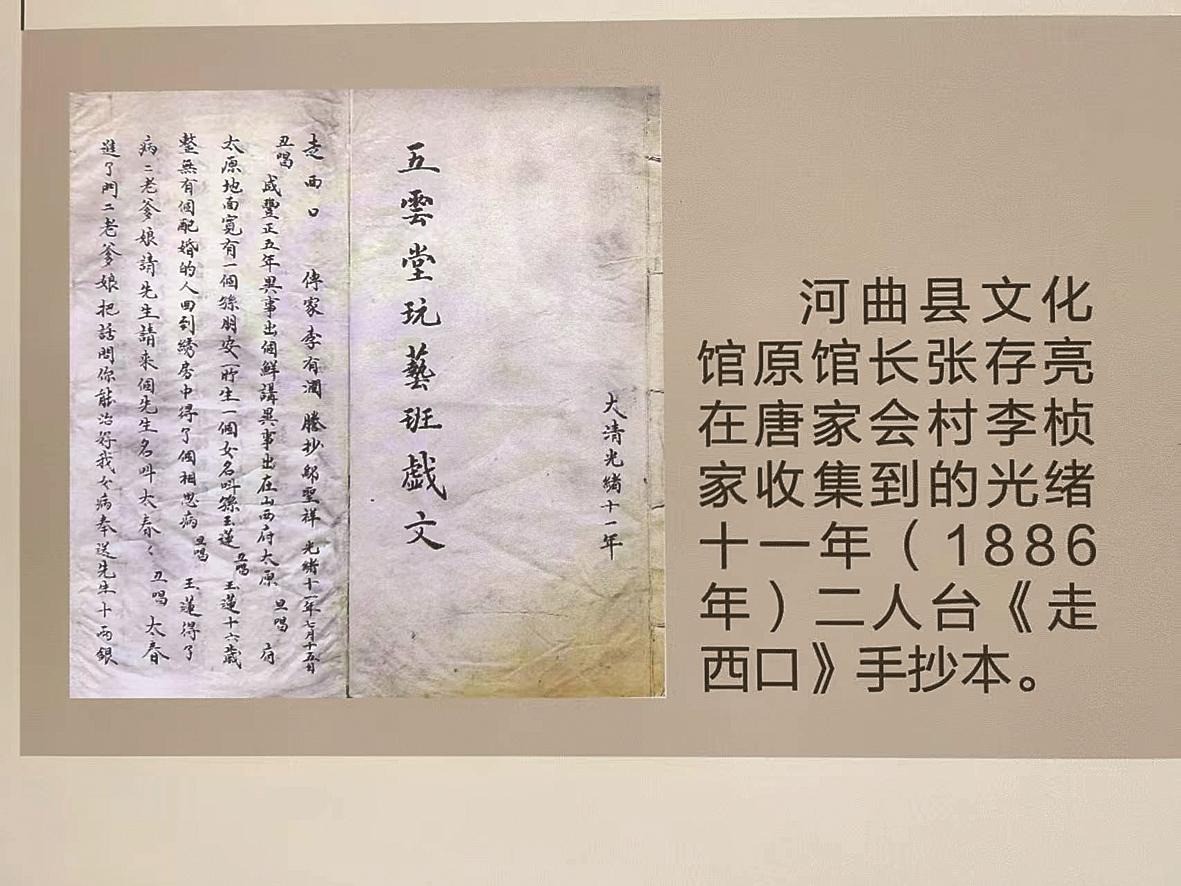 大清光緒十一年
五雲堂玩藝班戯文
走西口 傳家李有潤 謄抄 邬聖祥 光緒十一年七月十五日
丑唱 咸豐正五年異事出個鮮講異事出在山西府太原 旦唱 府
太原地面寛有一個孫朋安所生一個女名叫孫玉蓮 丑唱 玉蓮十六歲
整無有個配婚的人回到綉房中得了個相思病 旦唱 玉蓮得了
病二老爹娘請先生請來個先生名叫太春く 丑唱 太春
進了門二老爹娘把話問你能治好我女病奉送先生十両銀
河曲县文化
馆原馆长张存亮
在唐家会村李桢
家收集到的光绪
十一年（1886
年）二人台《走
西口》手抄本。